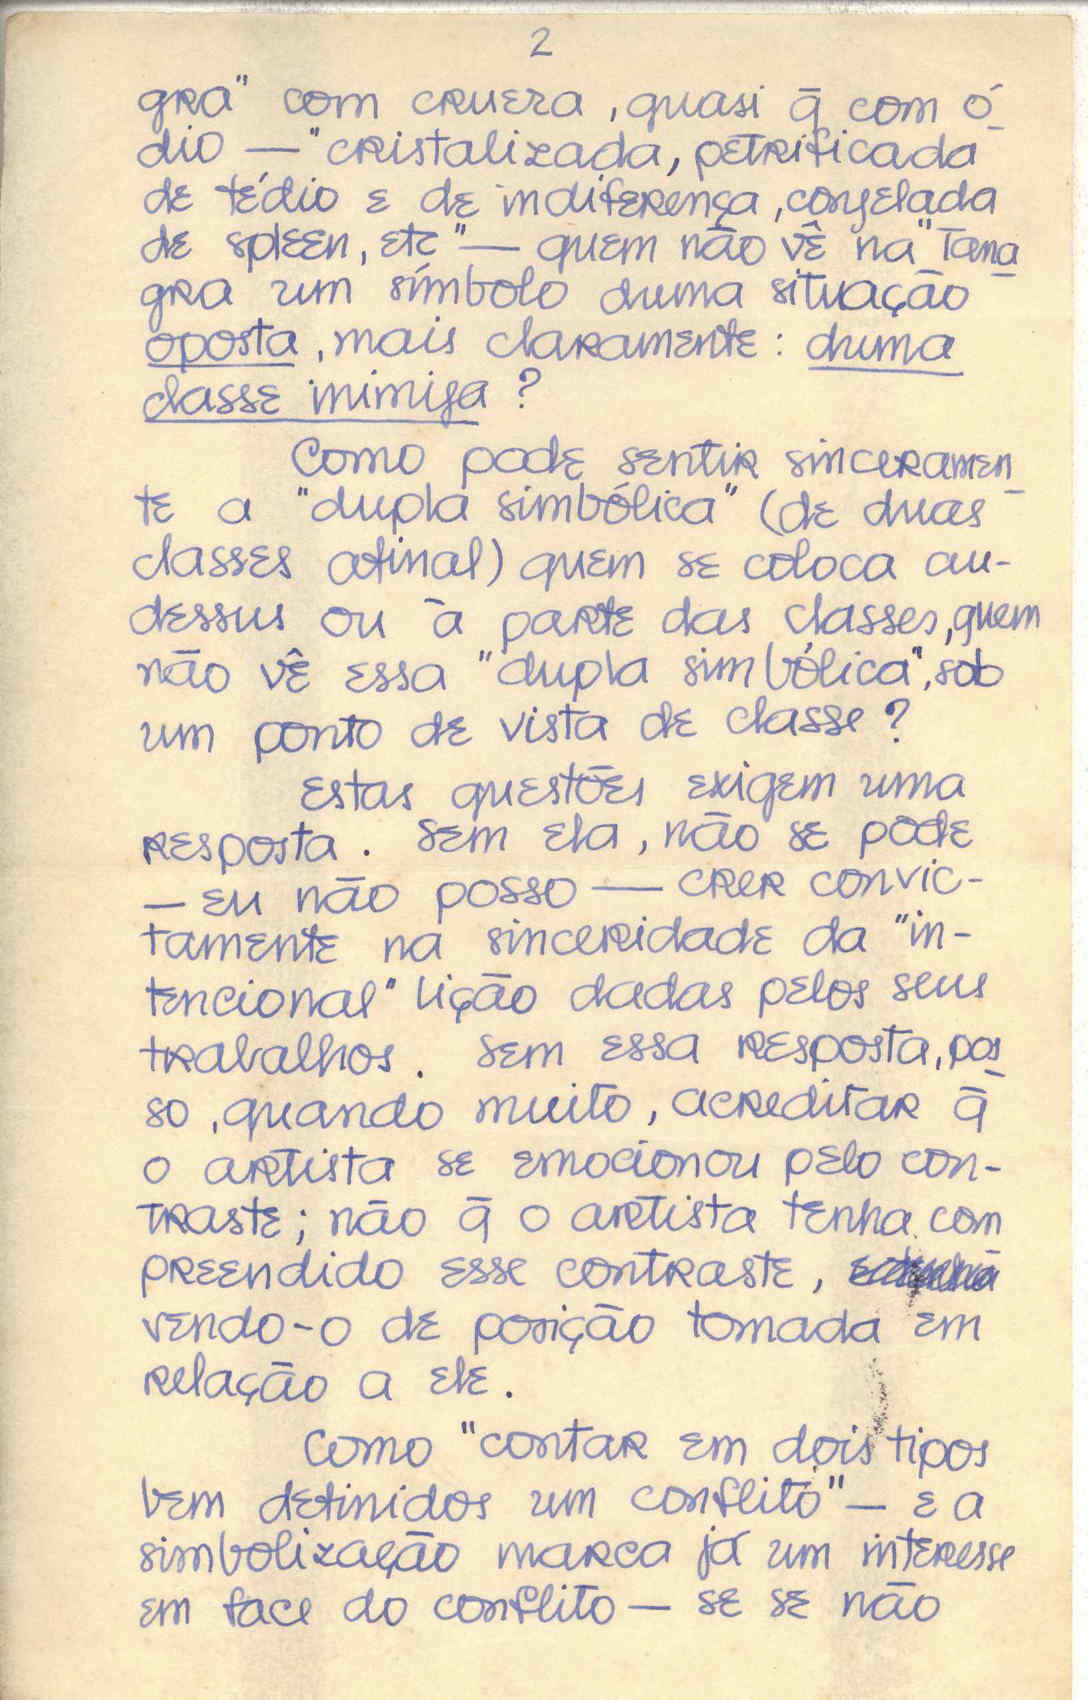 2
gra" com crueza, quasi q̄ com ó-
dio — "cristalizada, petrificada
de tédio e de indiferença, congelada
de spleen, etc" — quem não vê na "Tana-
gra um símbolo duma situação
oposta, mais claramente: duma
classe inimiga?
Como pode sentir sinceramen-
te a "dupla simbólica" (de duas
classes afinal) quem se coloca au-
dessus ou à parte das classes, quem
não vê essa "dupla simbólica", sob
um ponto de vista de classe?
Estas questões exigem uma
resposta. Sem ela, não se pode
— eu não posso — crer convic-
tamente na sinceridade da "in-
tencional" lição dadas pelos seus
trabalhos. Sem essa resposta, pos-
so, quando muito, acreditar q̄
o artista se emocionou pelo con-
traste; não q̄ o artista tenha com
preendido esse contraste,
vendo-o de posição tomada em
relação a ele.
Como "contar em dois tipos
bem definidos um conflito" — e a
simbolização marca já um interesse
em face do conflito — se se não